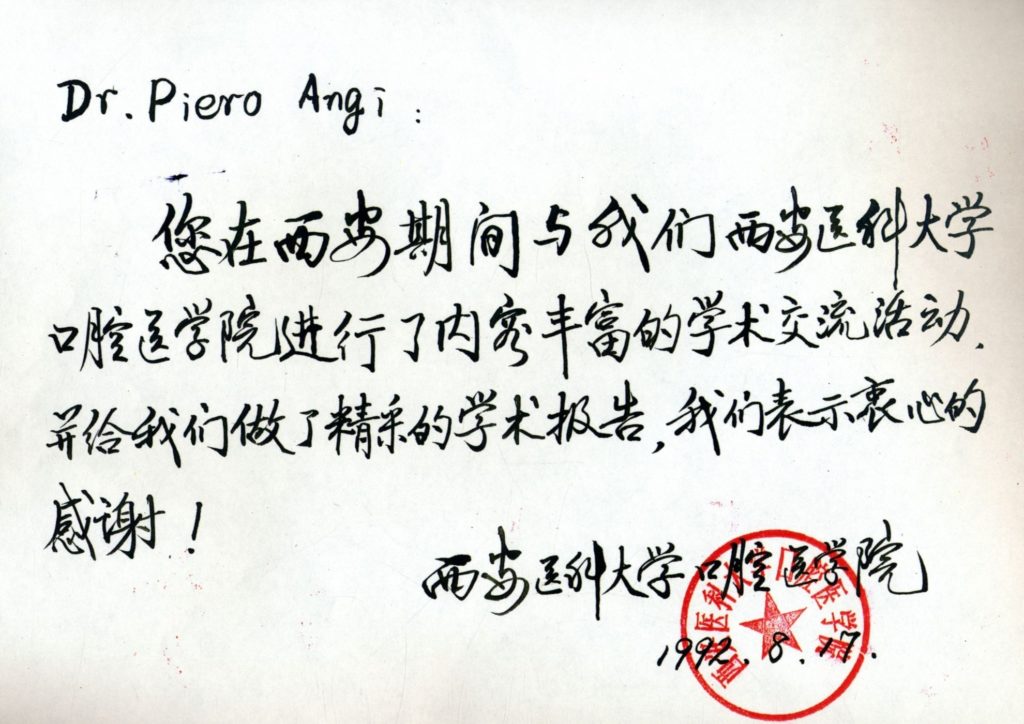 Dr. Piero Angi:
您在西安期间与我们西安医科大学
口腔医学院进行了内容丰富的学术交流活动.
并给我们做了精采的学术报告,我们表示衷心的
感谢!
西安医科大学口腔医学院
西安医科大学口腔医学院
1992.8.17.